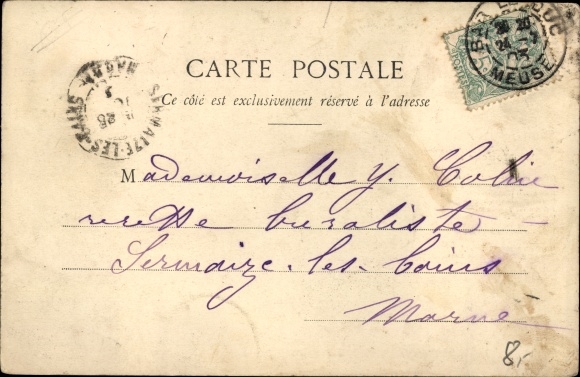 BAR-LE-DUC
MEUSE
SERMAIZE-LES-BAINS
MARNE
CARTE POSTALE
Ce côté est exclusivement réservé à l'adresse
Mademoiselle Y. Colin
recette buraliste
Sermaize-les-bains
Marne
8,-